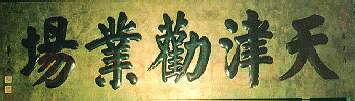 天津勸業場